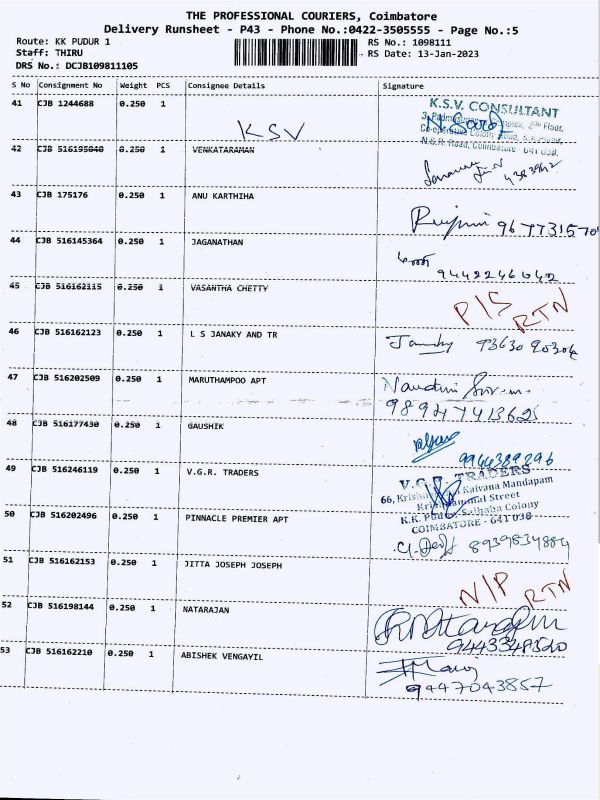 THE PROFESSIONAL COURIERS, Coimbatore
Delivery Runsheet - P43 - Phone No.:0422-3505555 - Page No.:5
Route: KK PUDUR 1 RS No.: 1098111
Staff: THIRU RS Date: 13-Jan-2023
DRS No.: DCJB109811105
S No Consignment No Weight PCS Consignee Details Signature
41 CJB 1244688 0.250 1
K.S.V. CONSULTANT
2nd Floor,
KSV
N.S.R. Road, Coimbatore - 641 038.
42 CJB 516195040 0.250 1 VENKATARAMAN
43 CJB 175176 0.250 1 ANU KARTHIHA
967731570
44 CJB 516145364 0.250 1 JAGANATHAN
9442246042
45 CJB 516162115 0.250 1 VASANTHA CHETTY
P/S RTN
46 CJB 516162123 0.250 1 L S JANAKY AND TR
47 CJB 516202509 0.250 1 MARUTHAMPOO APT
48 CJB 516177430 0.250 1 GAUSHIK
9944389296
49 CJB 516246119 0.250 1 V.G.R. TRADERS
V.G.R. TRADERS
Kalyana Mandapam
Street
K.K. Pudur, Saibaba Colony
COIMBATORE - 641 038
50 CJB 516202496 0.250 1 PINNACLE PREMIER APT
8939834884
51 CJB 516162153 0.250 1 JITTA JOSEPH JOSEPH
N/P RTN
52 CJB 516198144 0.250 1 NATARAJAN
53 CJB 516162210 0.250 1 ABISHEK VENGAYIL
9447043857